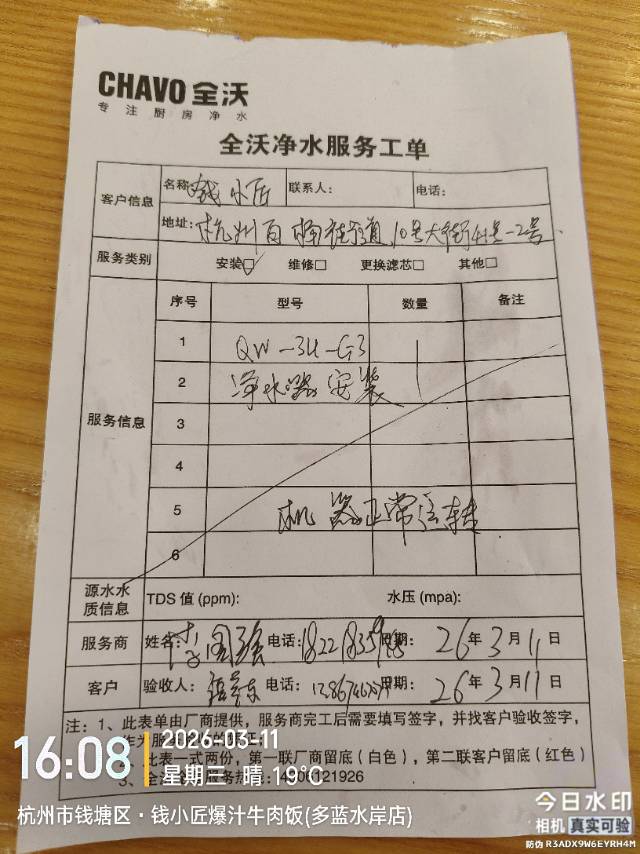 CHAVO 全沃
专注厨房净水
全沃净水服务工单
客户信息
名称: 钱小匠
联系人:
电话:
地址: 杭州百 街道10号大街41号-2号
服务类别
安装☑ 维修□ 更换滤芯□ 其他□
服务信息
序号 型号 数量 备注
1 QW-3U-G3 1
2 净水器安装
3
4
5 机器正常运转
6
源水水质信息
TDS 值 (ppm):
水压 (mpa):
服务商 姓名: 李国强 电话: 日期: 26年3月11日
客户 验收人: 电话: 日期: 26年3月11日
注: 1、此表单由厂商提供，服务商完工后需要填写签字，并找客户验收签字，
作为服
此表一式两份，第一联厂商留底（白色），第二联客户留底（红色）
3、全沃 服务热
16:08
2026-03-11
星期三 晴 19℃
杭州市钱塘区·钱小匠爆汁牛肉饭(多蓝水岸店)
今日水印
相机 真实可验
防伪 R3ADX9W6EYRH4M